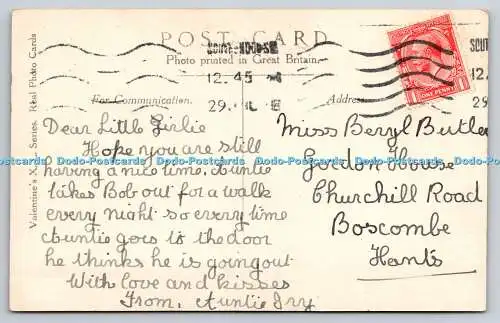 POST CARD
Photo printed in Great Britain.
12.45
29
For Communication.
Address
ONE PENNY
Valentine's Series. Real Photo Cards
Dear Little Girlie
Hope you are still
having a nice time. Auntie
takes Bob out for a walk
every night so every time
Auntie goes to the door
he thinks he is going out
With love and kisses
From, Auntie Ivy
Miss Beryl Butler
Gordon House
Churchill Road
Boscombe
Hants
Dodo-Postcards Dodo-Postcards Dodo-Postcards Dodo-Postcards Dodo-Postcards Dodo-Postcards